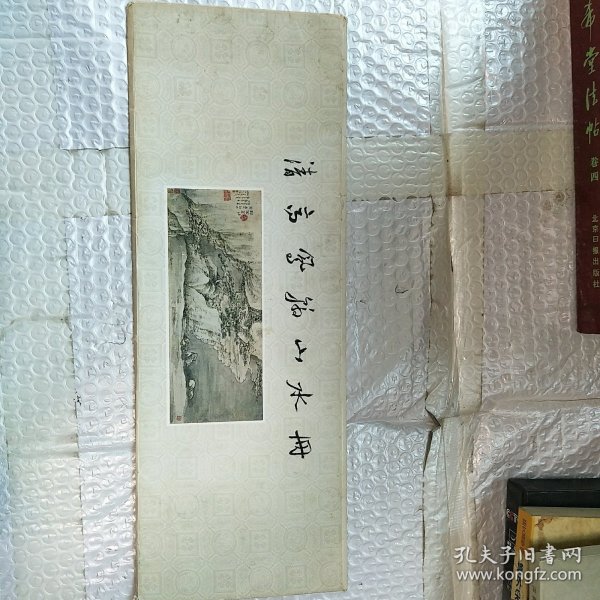 清高凤翰山水册
希堂法帖
卷四
北京日报出版社
孔夫子旧书网
www.kongfz.com